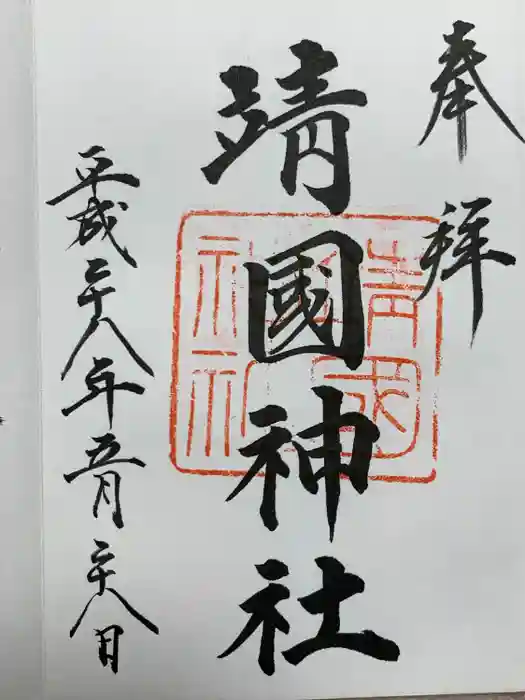 奉拝
靖國神社
平成二十八年五月二十八日
靖國神社